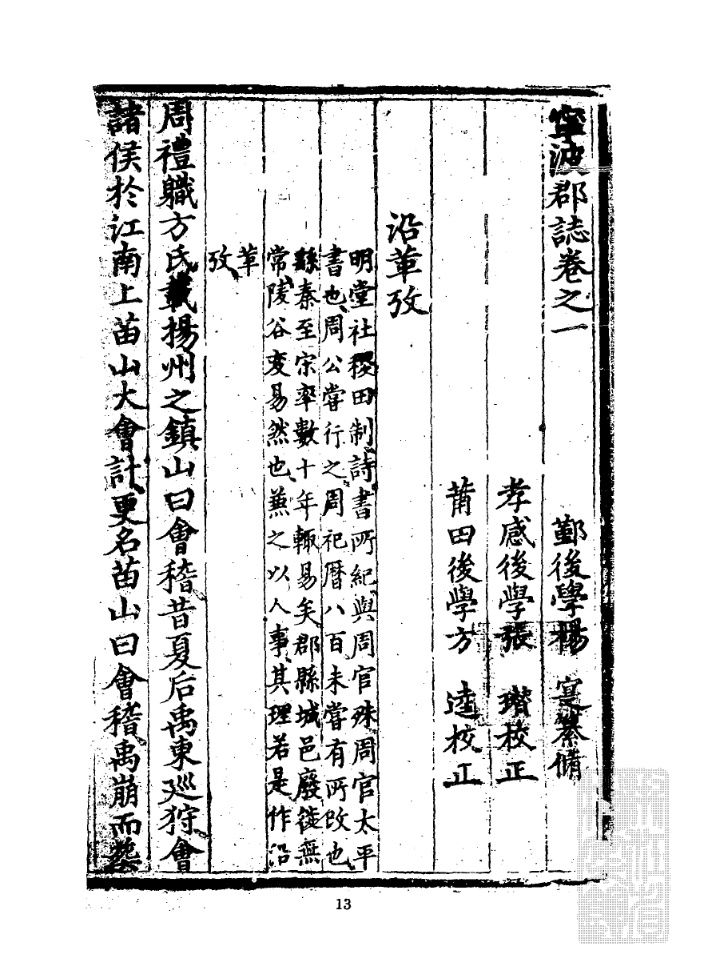 寧波郡誌卷之一
鄞後學楊 寔纂脩
孝感後學張 瓚校正
莆田後學方 逵校正
沿革攷
明堂社稷田制詩書所紀與周官殊周官太平
書也周公嘗行之周祀曆八百未嘗有所改也
縣秦至宋率數十年輙易矣郡縣城邑廢徙無
常陵谷变易然也兼之以人事其理若是作沿
革攷
周禮職方氏載揚州之鎮山曰會稽昔夏后禹東廵狩會
諸侯於江南上苗山大會計更名苗山曰會稽禹崩而塟
13